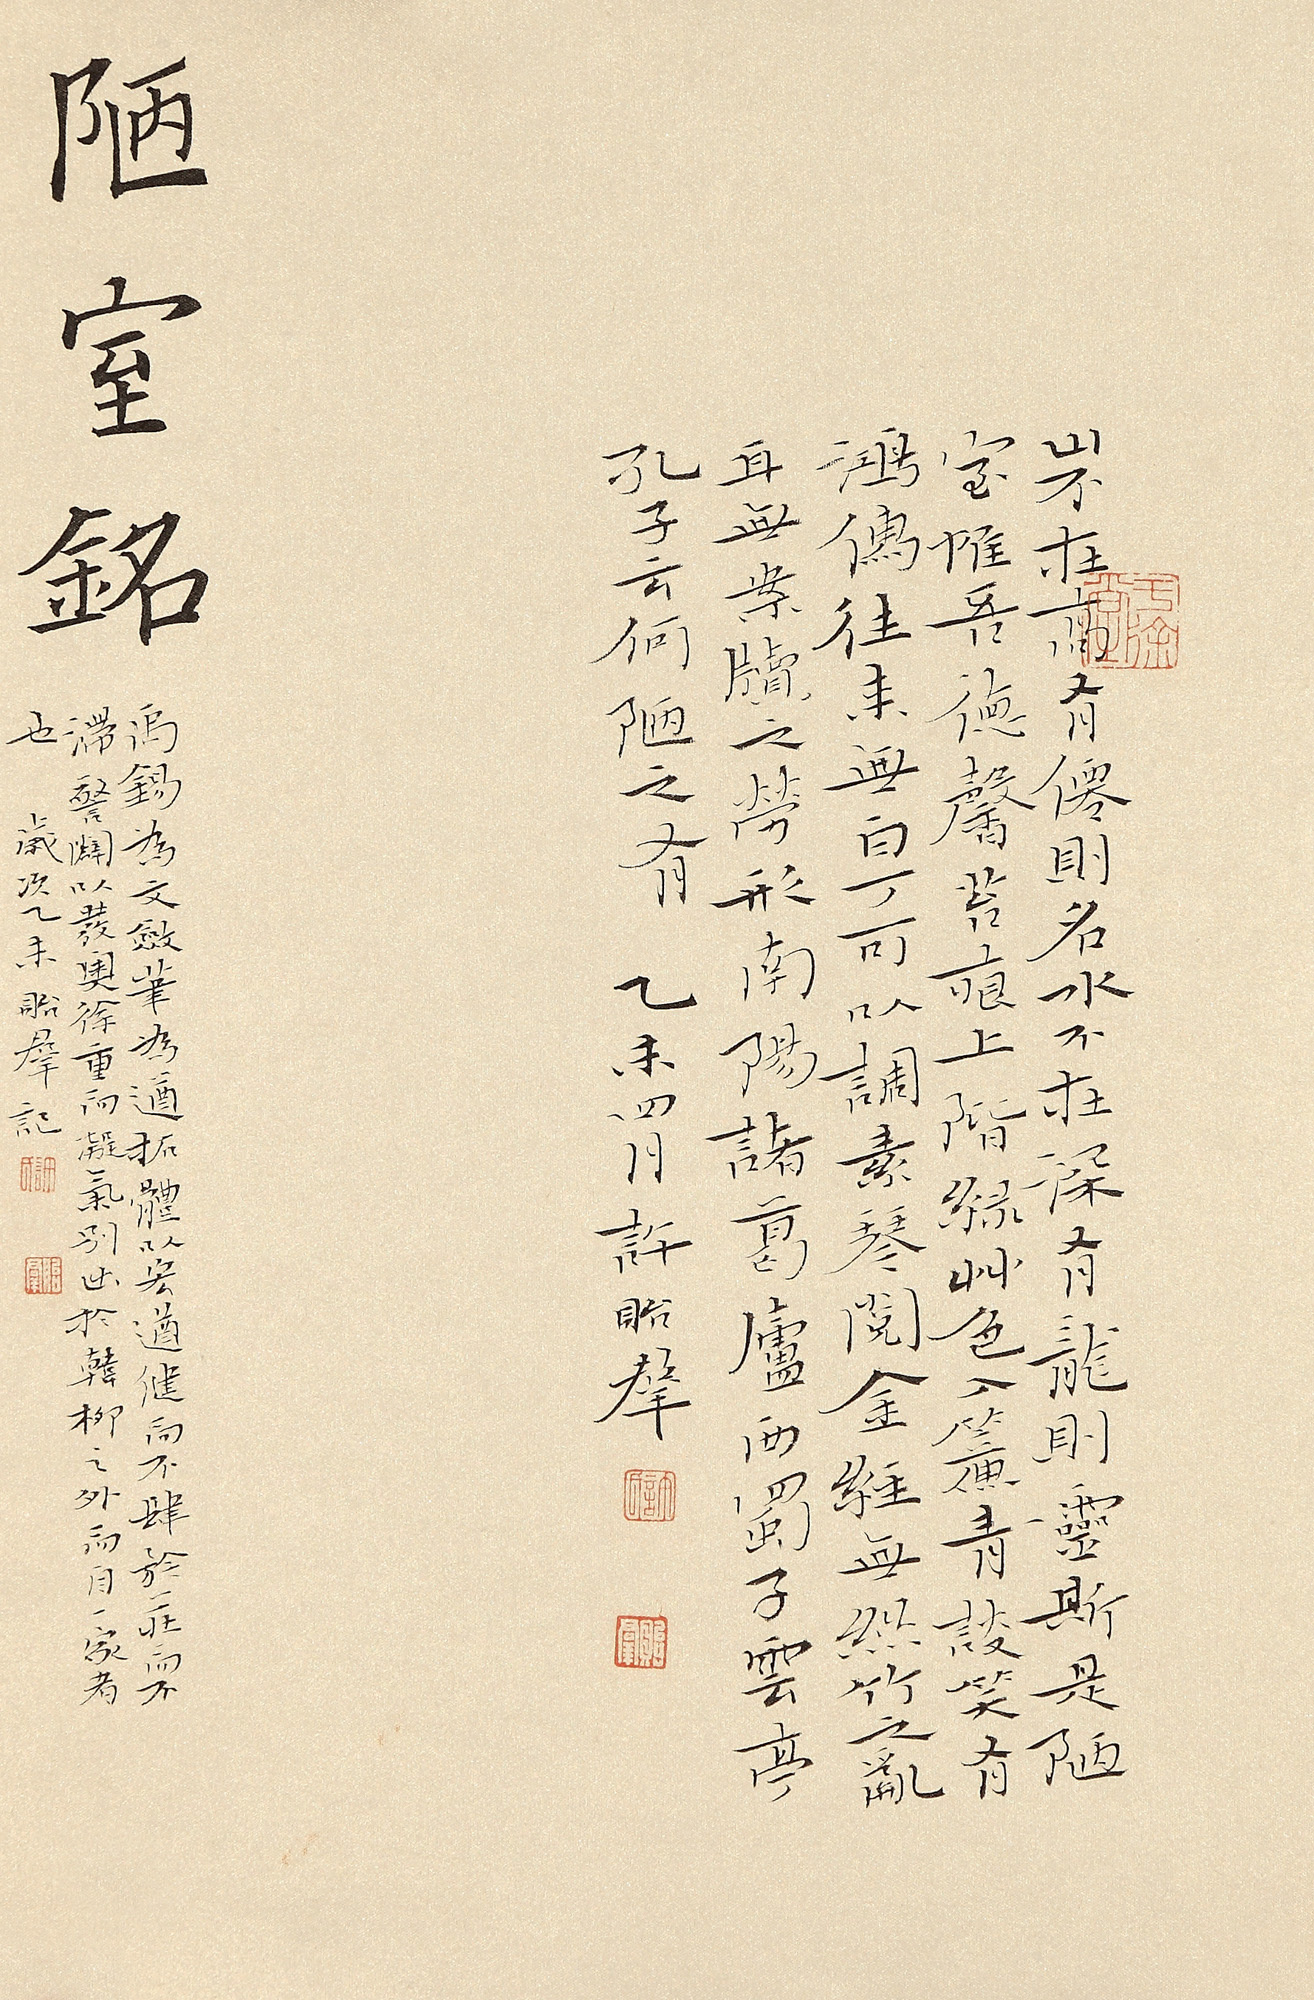 山不在高有僊則名水不在深有龍則靈斯是陋
室惟吾德馨苔痕上階緑艸色入簾青談笑有
鴻儒往来無白丁可以調素琴閲金經無絲竹之亂
耳無案牘之勞形南陽諸葛廬西蜀子雲亭
孔子云何陋之有 乙未四月許眙羣
陋室銘
錫為文斂筆為遒拓體以宏遒健而不肆於莊而不
滯警闢以發奧徐重而凝氣別出於韓柳之外而自一家者
也 歲次乙未眙羣記